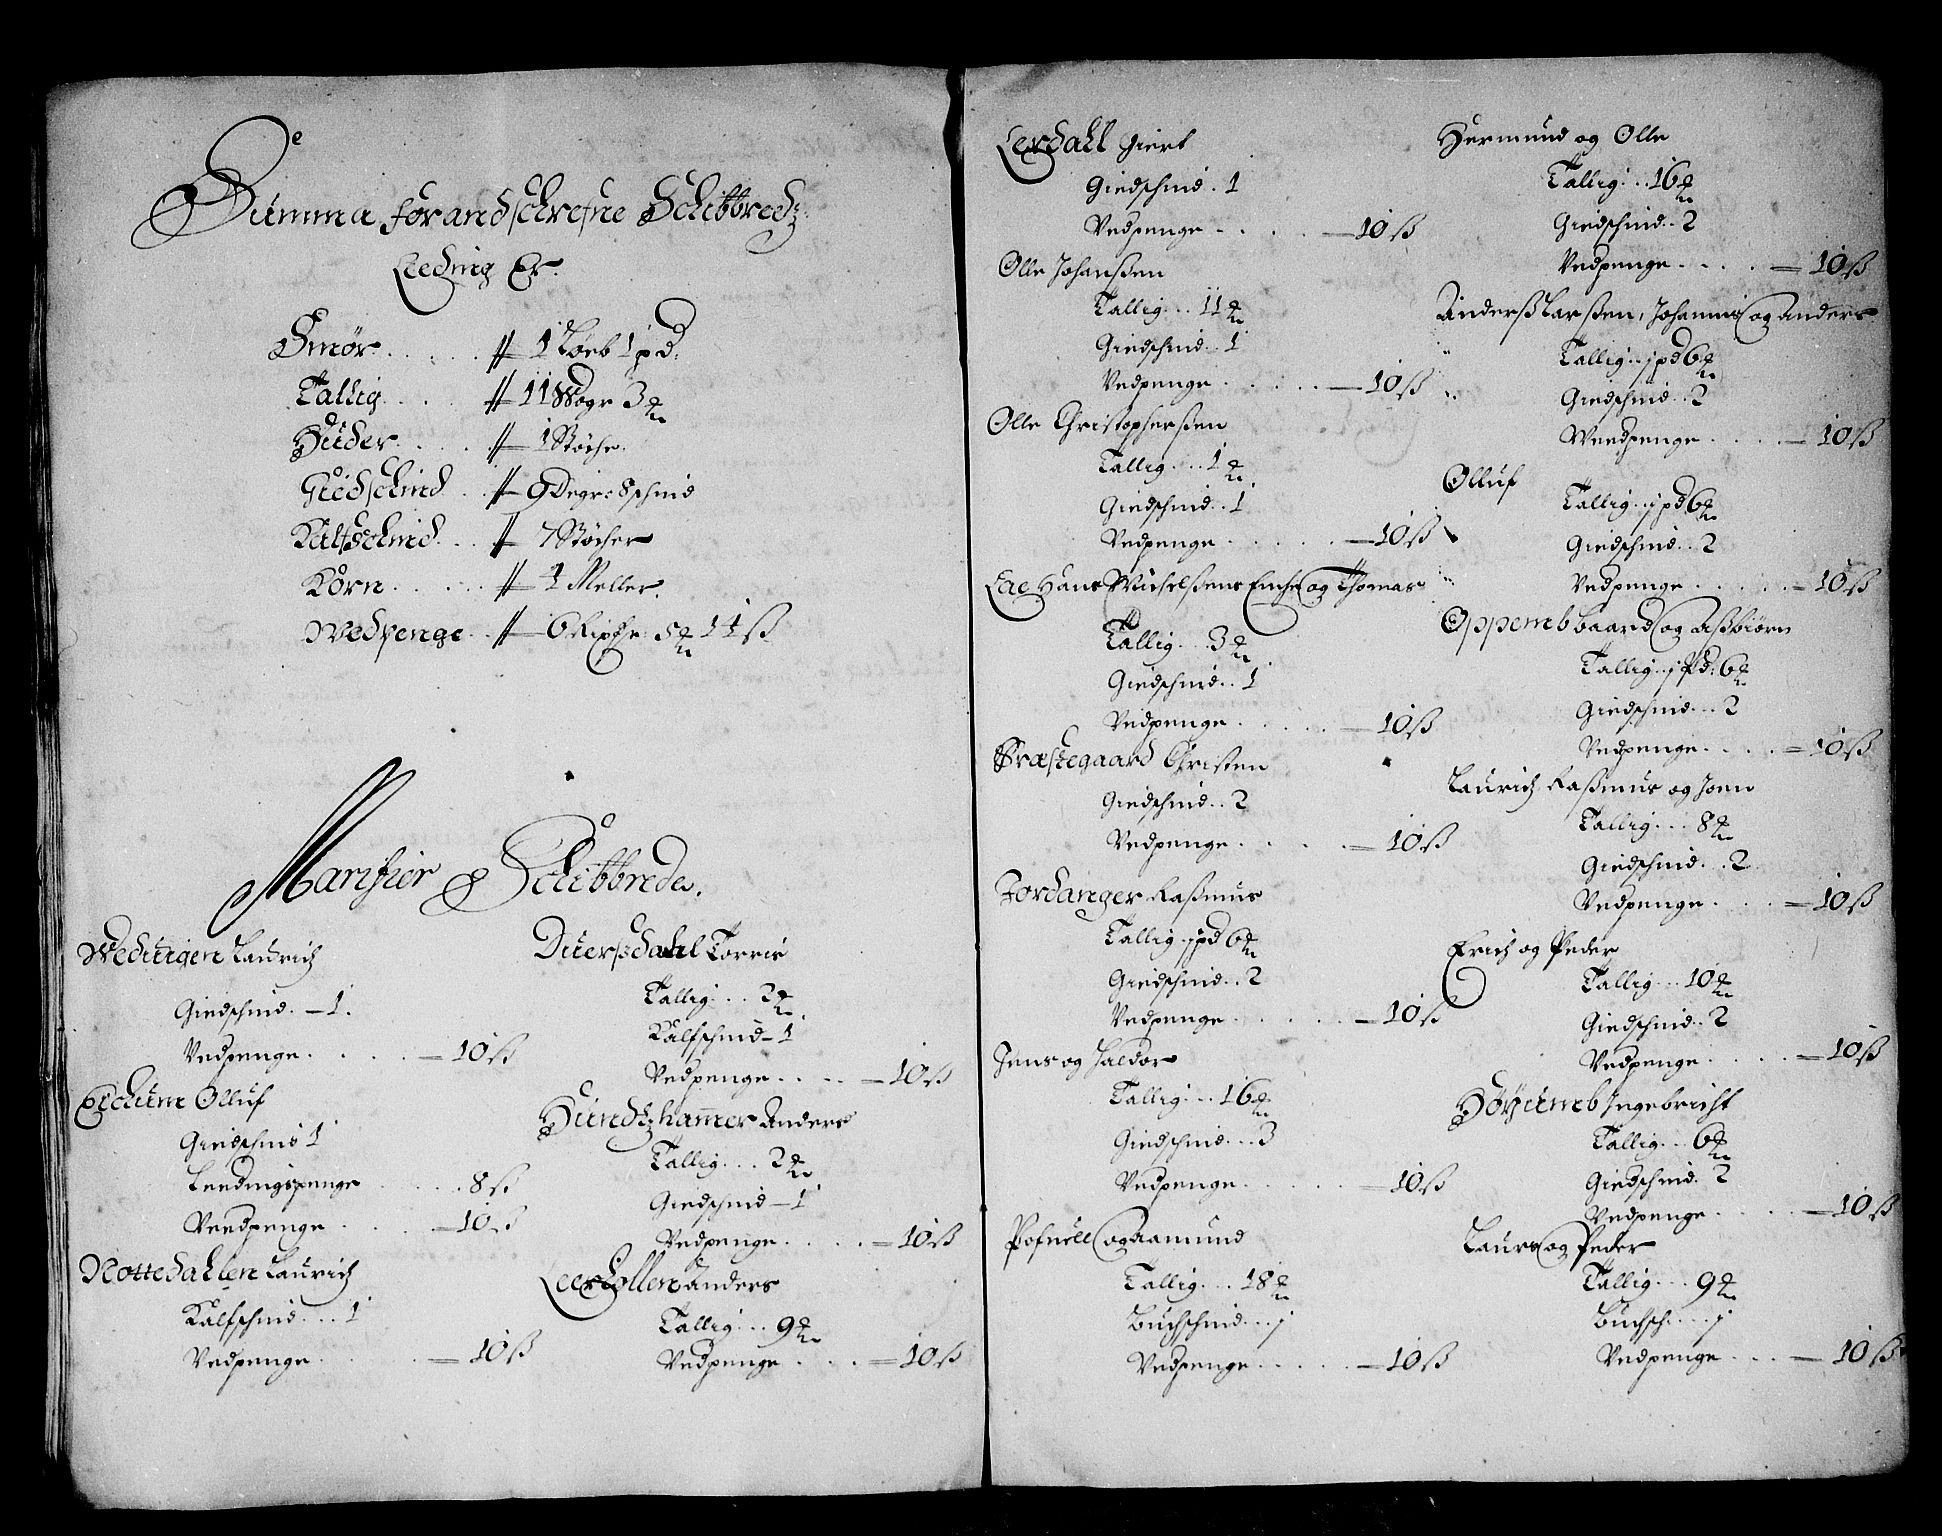 Summa forandschrefne Schibbredz
Leeding Er.
Smør . . . . . # 1 Løeb 1 pd:
Tallig . . . . # 11 Woger 3 ℔
Huder . . . . # 1 Støche.
Giedschind . . # 9 Degr: 8 schind
Kalfschind . . . # 7 Støcher
Korn . . . . . # 4 Meller.
Wedpenge . . # 6 Rixdr: 5 ℔ 11 ß
Marifiør Schibbrede.
Wedvigen Laurich
Giedschind . – 1.
Vedpenge . . . . – 10 ß
Eichum Olluf
Giedschind 1
Leedingspenge . . . . 8 ß
Veedpenge . . . . – 10 ß
Nottedahlen Laurich
Kalfschind . . . 1
Vedpenge . . . . – 10 ß
Duersdahl Torris
Tallig . . . 2 ℔.
Kalfschind – 1
Vedpenge . . . . – 10 ß
Hundzhamer Anders
Tallig . . . 2 ℔
Giedschind – 1
Vedpenge . . . . – 10 ß
Anders
Tallig . . . 9 ℔
Vedpenge . . . . – 10 ß
Lerdahl Giert
Giedschind . 1
Vedpenge . . . . – 10 ß
Olle Johanßen
Tallig . . . 11 ℔
Giedschind . . 1
Vedpenge . . . . . – 10 ß
Olle Christopherßen
Tallig . . . 1 ℔.
Giedschind . . 1
Vedpenge . . . . . – 10 ß
Lae Hans Michelßens Enche og Thomas
Tallig . . . 3 ℔
Giedschind . . 1
Vedpenge . . . . . – 10 ß
Præstegaard Christen
Giedschind . . 2
Vedpenge . . . . . – 10 ß
Jordanger Raßmus
Tallig . j pd 6 ℔
Giedschind . . 2
Vedpenge . . . . . – 10 ß
Jens og Haldor
Tallig . . . 16 ℔
Giedschind . . . 3
Vedpenge . . . . . – 10 ß
Pofuell og Aamund
Tallig . . . 18 ℔
Buchschind . . . j
Vedpenge . . . . . – 10 ß
Hermund og Olle
Tallig . . . 16 ℔
Giedschind . . 2
Vedpenge . . . . – 10 ß
Anderß Larßen, Johannis og Anders
Tallig . . j pd 6 ℔
Giedschind . . 2
Weedpenge . . . . – 10 ß
Olluf
Tallig . . j pd 6 ℔
Giedschind . . 2
Vedpenge . . . . . – 10 ß
Oppemb baard og Aßbiørn
Tallig . . j Pd: 6 ℔
Giedschind . . . 2
Vedpenge . . . . – 10 ß
Laurich Raßmus og Joen
Tallig . . . 8 ℔
Giedschind . . . 2
Vedpenge . . . . – 10 ß
Erich og Peder
Tallig . . . 10 ℔
Giedschind . . 2
Vedpenge . . . . – 10 ß
Høyumb Ingebricht
Tallig . . . 6 ℔
Giedschind . 2
Vedpenge . . . . . – 10 ß
Laurs og Peder
Tallig . . . 9 ℔
Buchsch: . . . j
Vedpenge . . . . – 10 ß